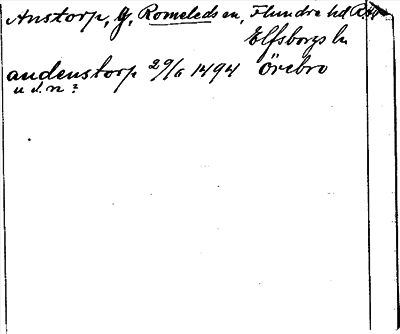 Anstorp, G, Romeleds sn, Flundre hd
Elfsborgs l.
andenstorp 29/6 1494 Örebro
u d. n ?